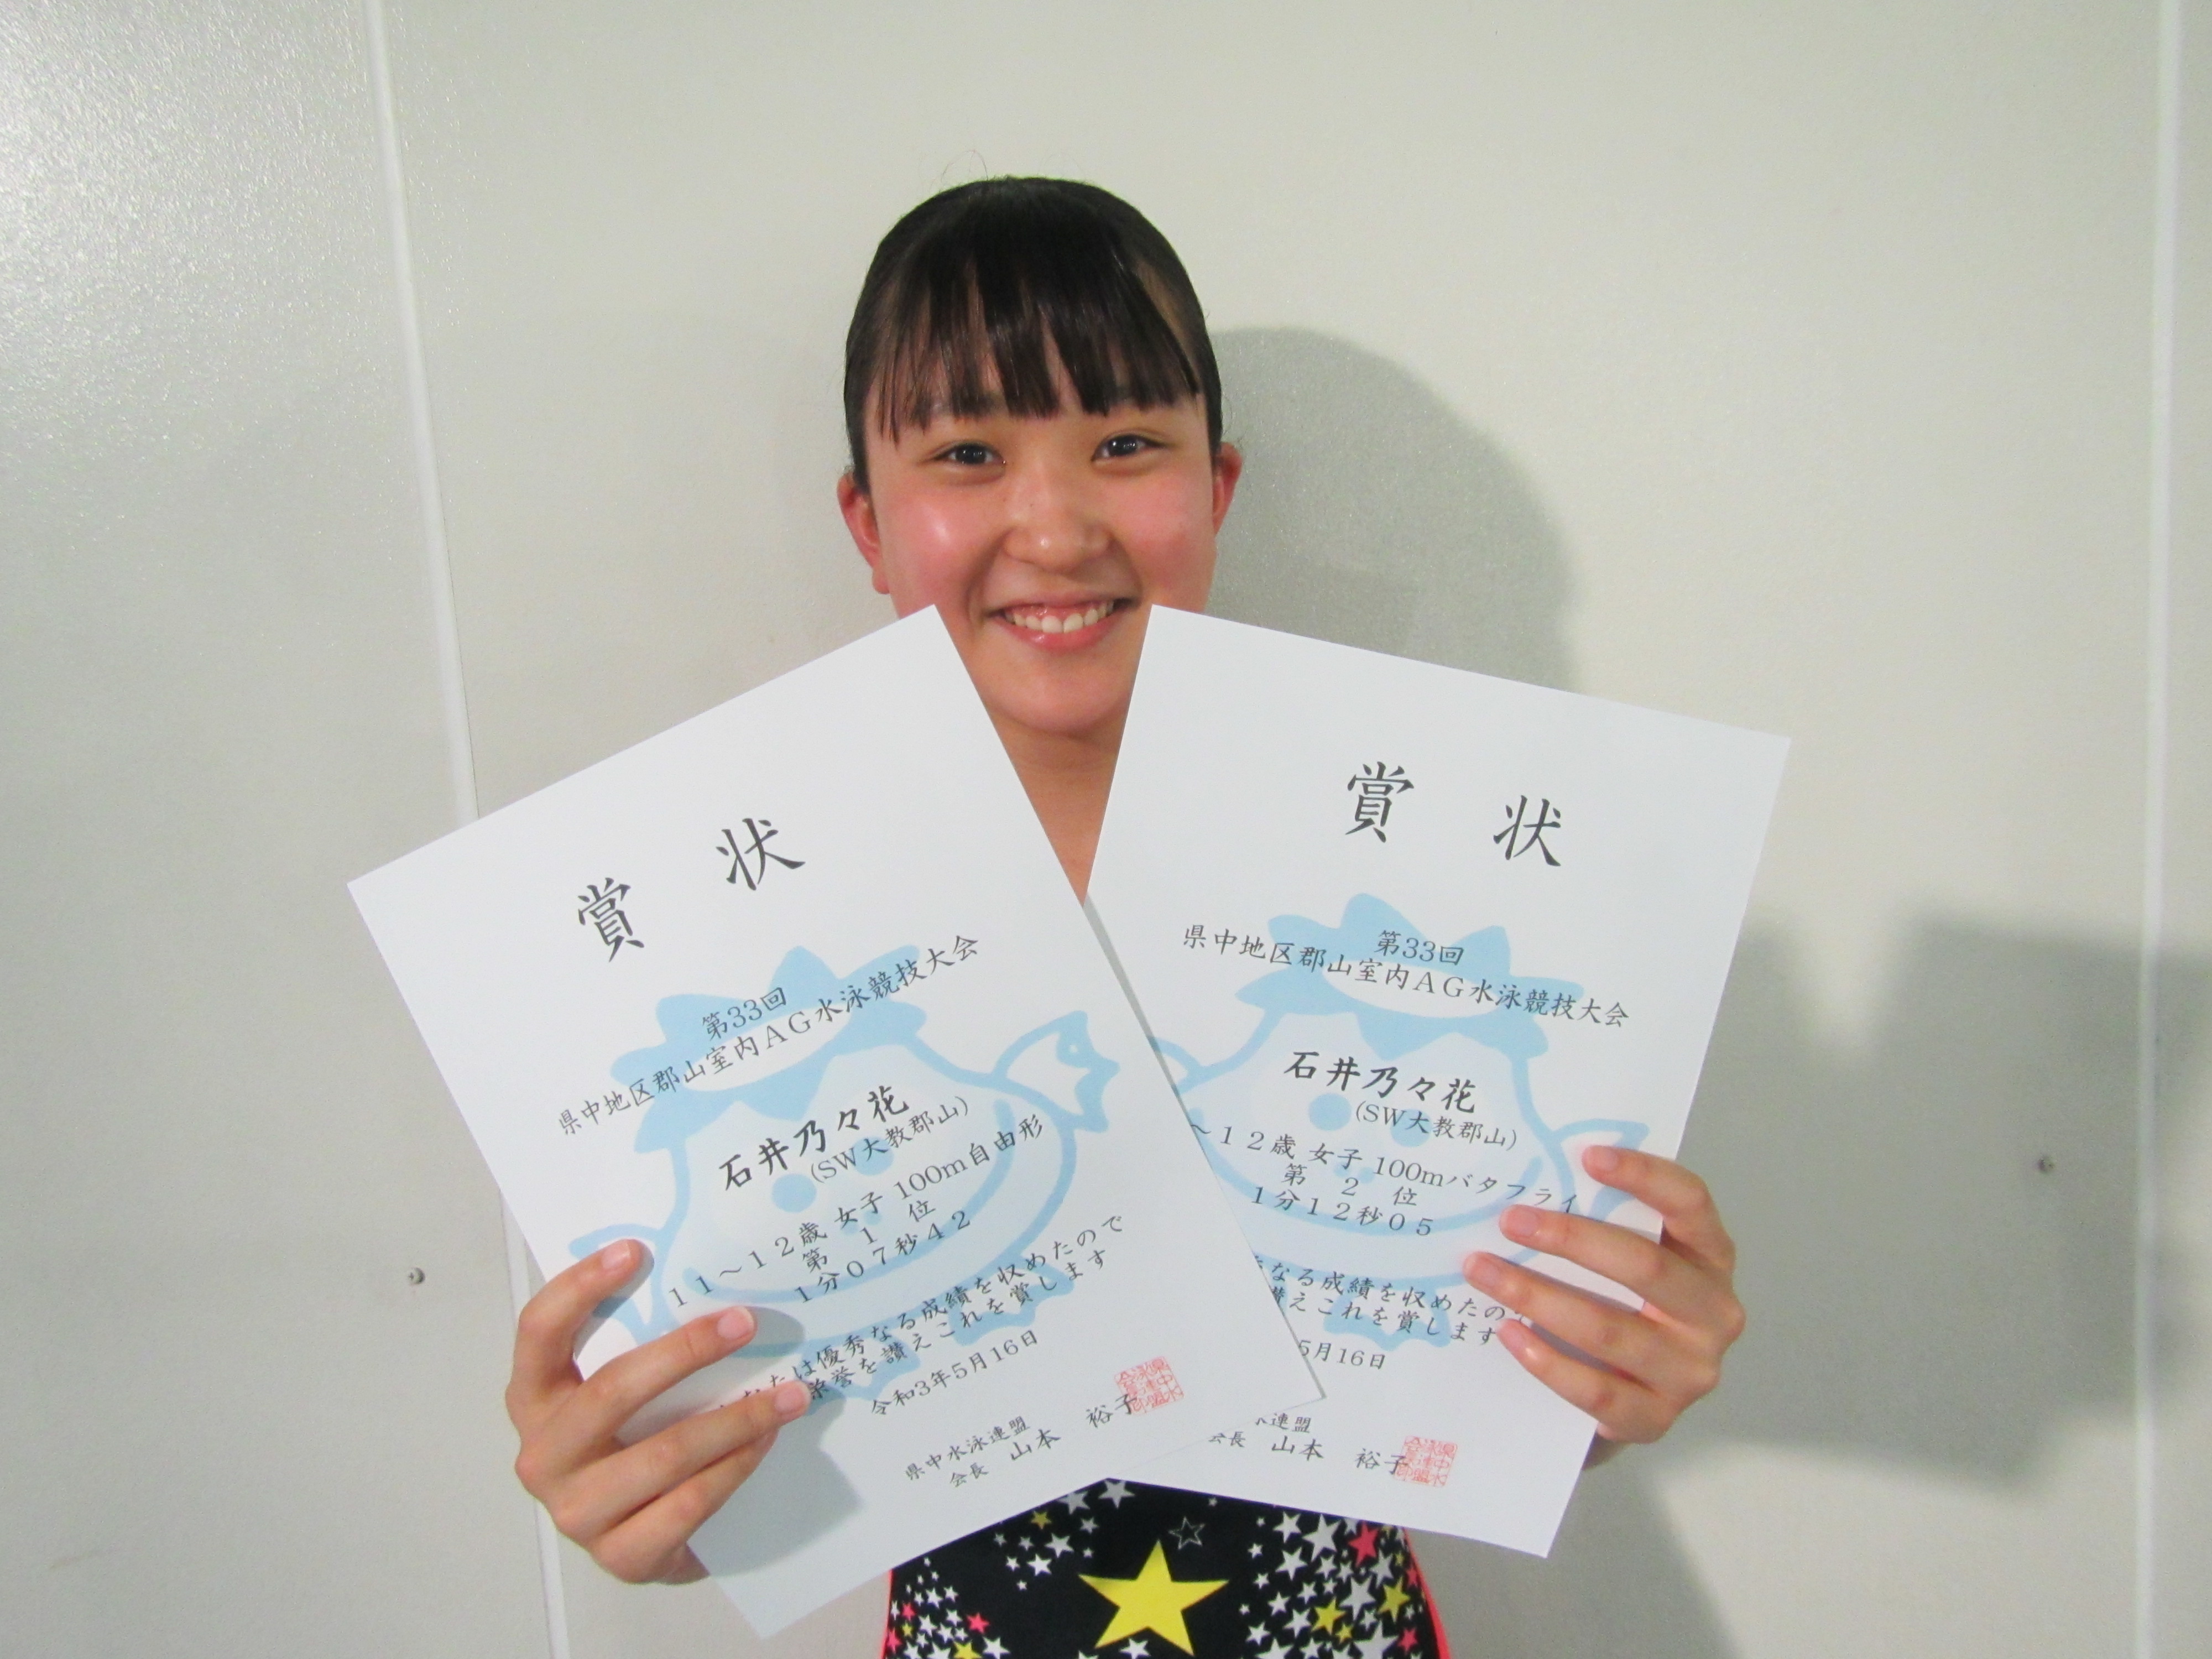 賞 状
第33回
県中地区郡山室内AG水泳競技大会
石井乃々花
(SW大教郡山)
11～12歳 女子 100m自由形
第 1 位
1分07秒42
たは優秀なる成績を収めたので
栄誉を讃えこれを賞します
令和3年5月16日
県中水泳連盟
会長 山本 裕子
賞 状
第33回
県中地区郡山室内AG水泳競技大会
石井乃々花
(SW大教郡山)
～12歳 女子 100mバタフライ
第 2 位
1分12秒05
なる成績を収めたので
讃えこれを賞します
5月16日
連盟
会長 山本 裕子